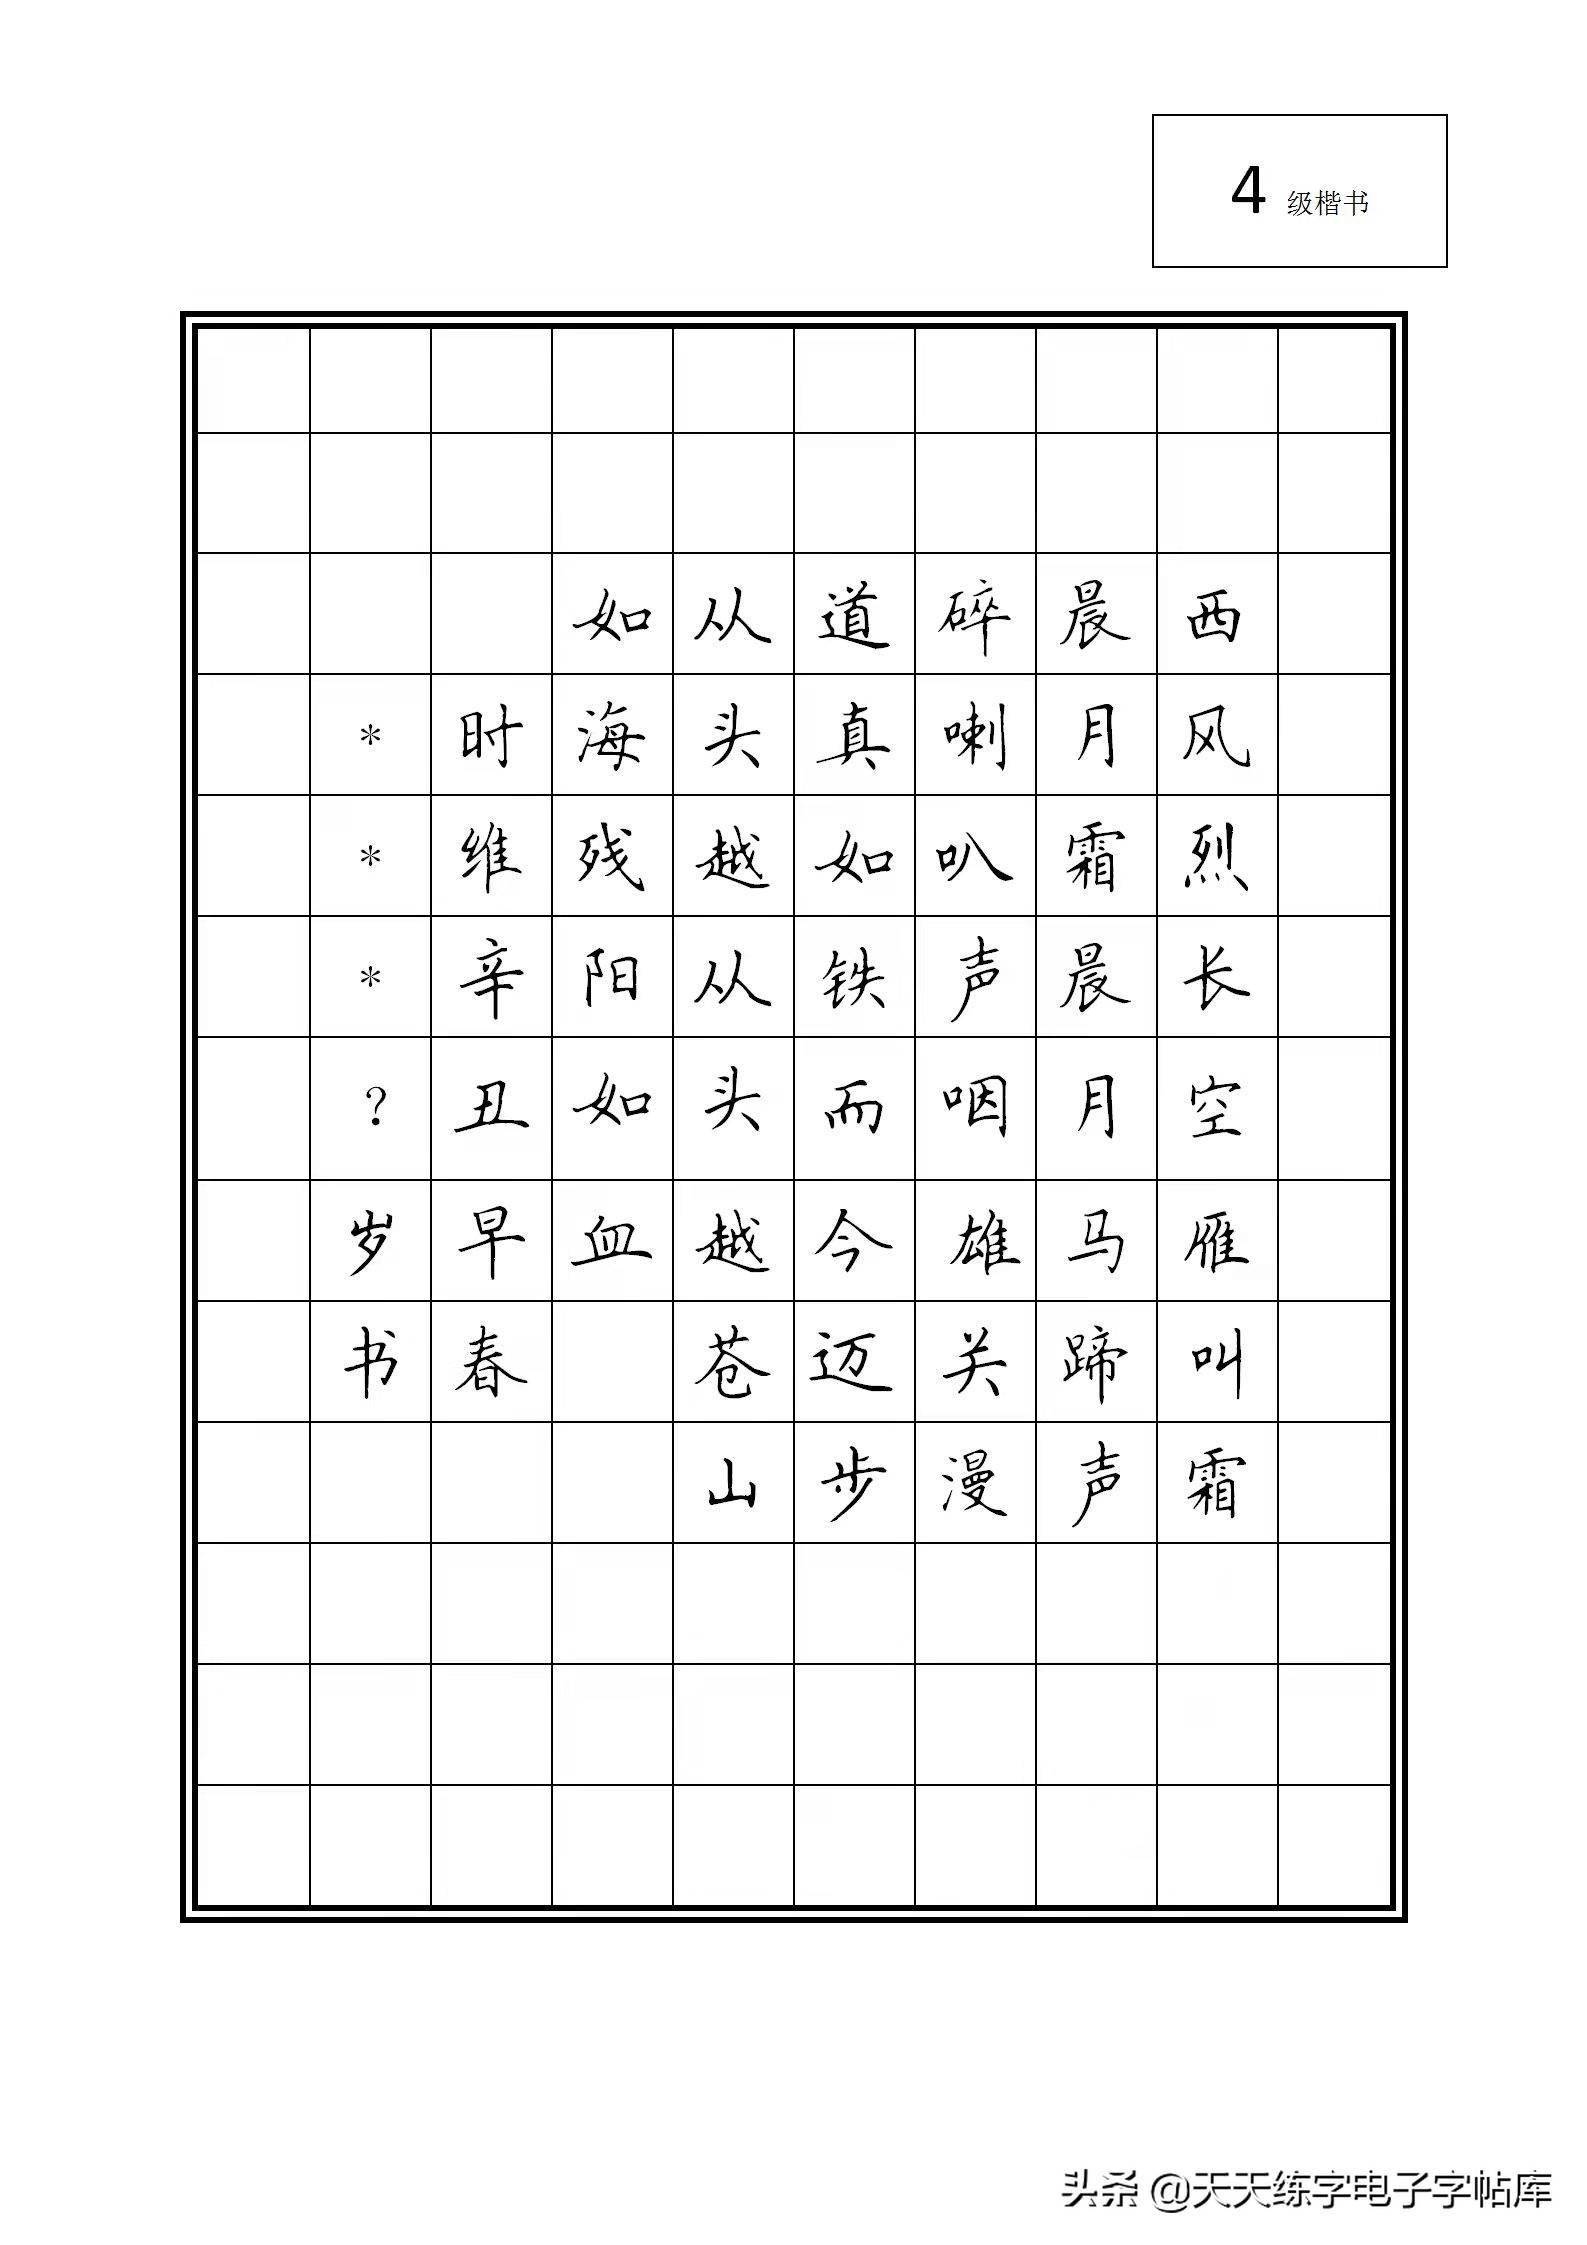 4 级楷书
西风烈长空雁叫霜
晨月霜晨月马蹄声
碎喇叭声咽雄关漫
道真如铁而今迈步
从头越从头越苍山
如海残阳如血
时维辛丑早春
***?岁书
头条 @天天练字电子字帖库